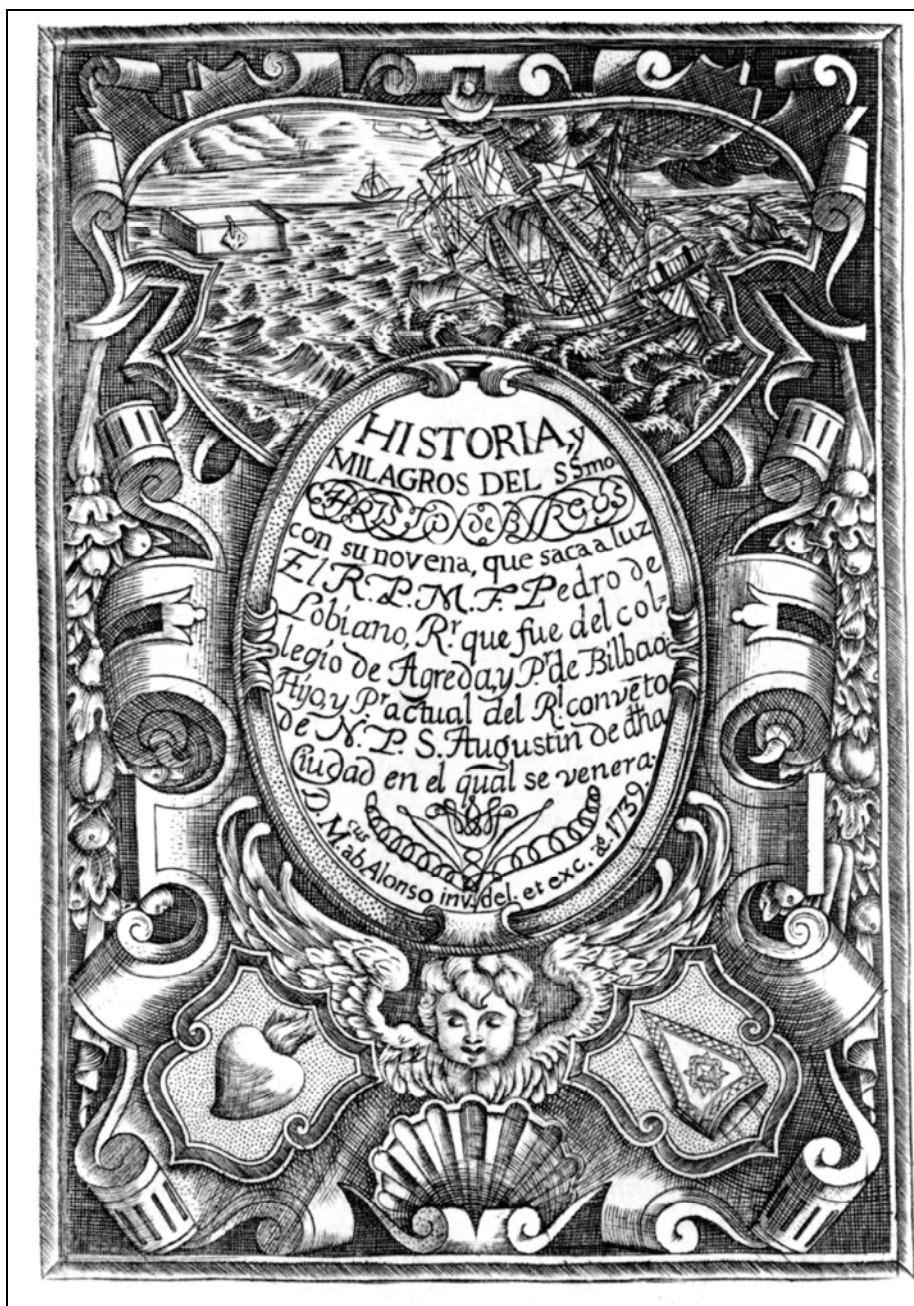 HISTORIA, y
MILAGROS DEL SSmo
CHRISTO de BURGOS
con su novena, que saca a luz
El R. P. M. F. Pedro de
Lobiano, Rr. que fue del col=
legio de Agreda, y Pr. de Bilbao.
Hijo, y Pr. actual del Rl. convẽto
de N. P. S. Augustin de dha
Ciudad en el qual se venera.
D. Mcus ab. Alonso inv. del. et exc. ae. 1739.